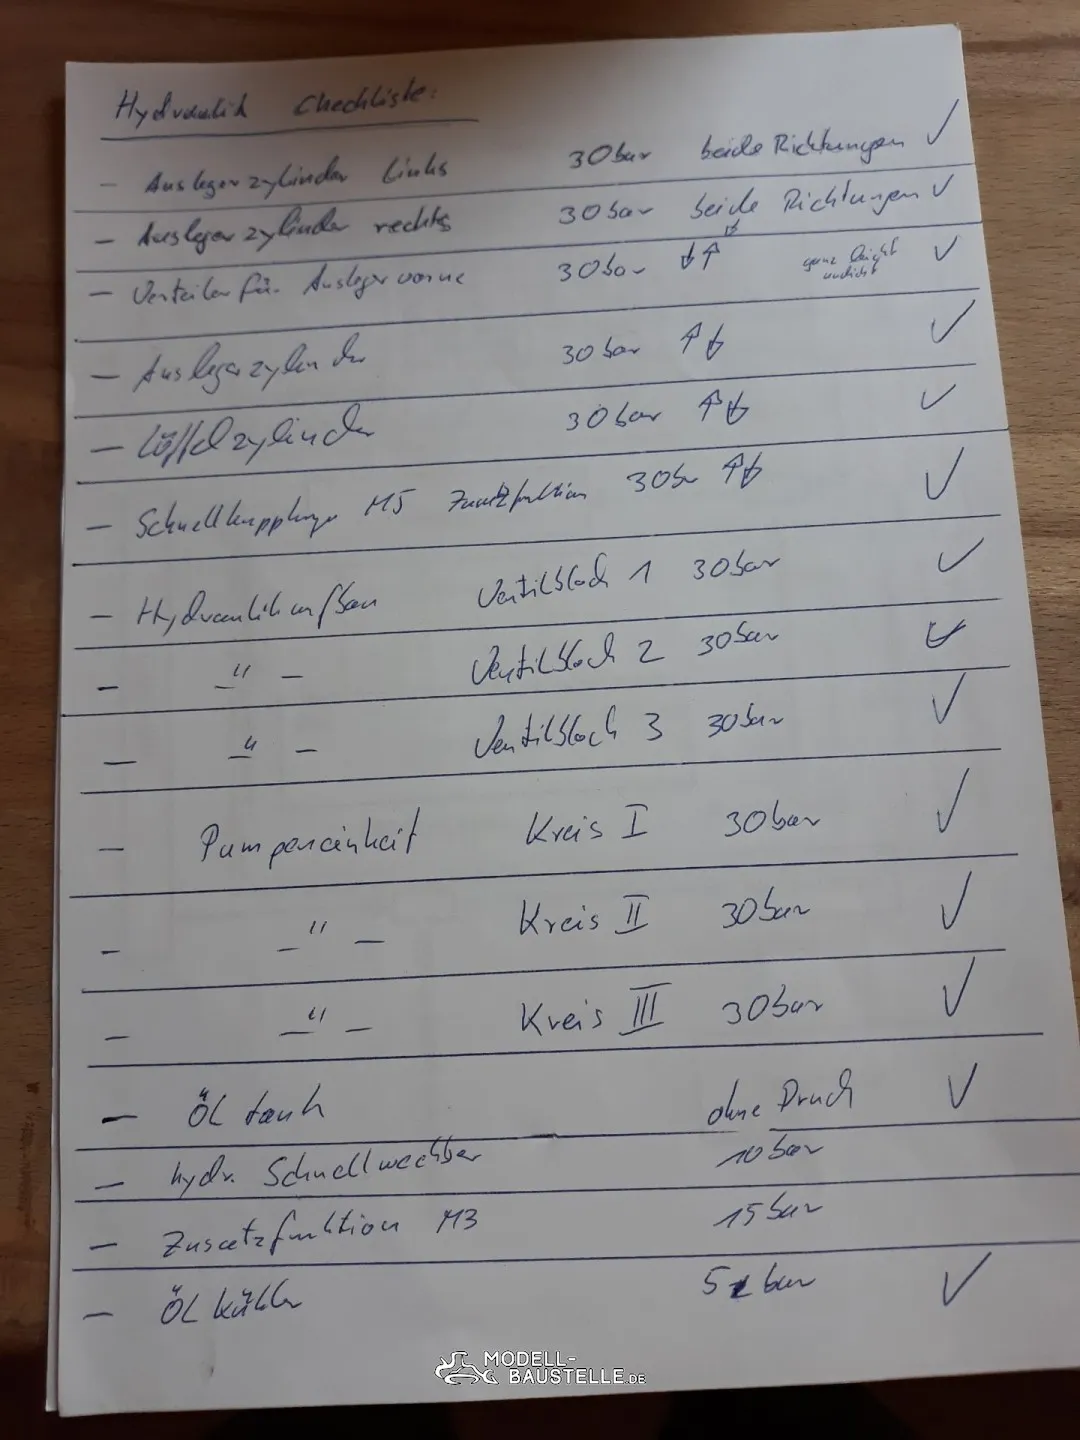 Hydraulik Checkliste:
- Auslegerzylinder Links 30bar beide Richtungen ✓
- Auslegerzylinder rechts 30bar beide Richtungen ✓
- Verteiler für Ausleger vorne 30bar ↓↑ ganz leicht undicht ✓
- Auslegerzylinder 30bar ↑↓ ✓
- Löffelzylinder 30bar ↑↓ ✓
- Schnellkupplung M5 Zusatzfunktion 30bar ↑↓ ✓
- Hydraulikaufbau Ventilblock 1 30bar ✓
- -"- Ventilblock 2 30bar ✓
- -"- Ventilblock 3 30bar ✓
- Pumpeneinheit Kreis I 30bar ✓
- -"- Kreis II 30bar ✓
- -"- Kreis III 30bar ✓
- ÖL tank ohne Druck ✓
- hydr. Schnellwechsler 10bar
- Zusatzfunktion M3 15bar
- ÖL kühler 5 bar ✓
MODELL-
BAUSTELLE.DE